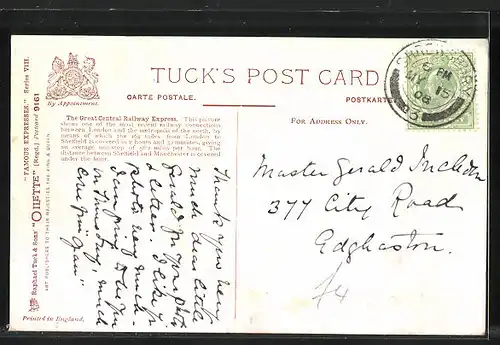 TUCK'S POST CARD
CARTE POSTALE.
POSTKARTE
By Appointment.
FOR ADDRESS ONLY.
The Great Central Railway Express. This picture
shows one of the most recent railway connections
between London and the metropolis of the north, by
means of which the 164 miles from London to
Sheffield is covered in 3 hours and
giving
an average running of miles per hour. The
distance between Sheffield and Manchester is covered
under the hour.
"FAMOUS EXPRESSES" Series VIII.
Raphael Tuck & Sons' "OILETTE" (Regd.) Postcard 9161
ART PUBLISHERS TO THEIR MAJESTIES THE KING & QUEEN
Printed in England.
Thank you very
much dear little
Gerald for your
letter. I like
photo very much
I am
on Thursday, much
love from
Master Gerald Incledon
377 City Road
Edgbaston.
PM
JY 15
08